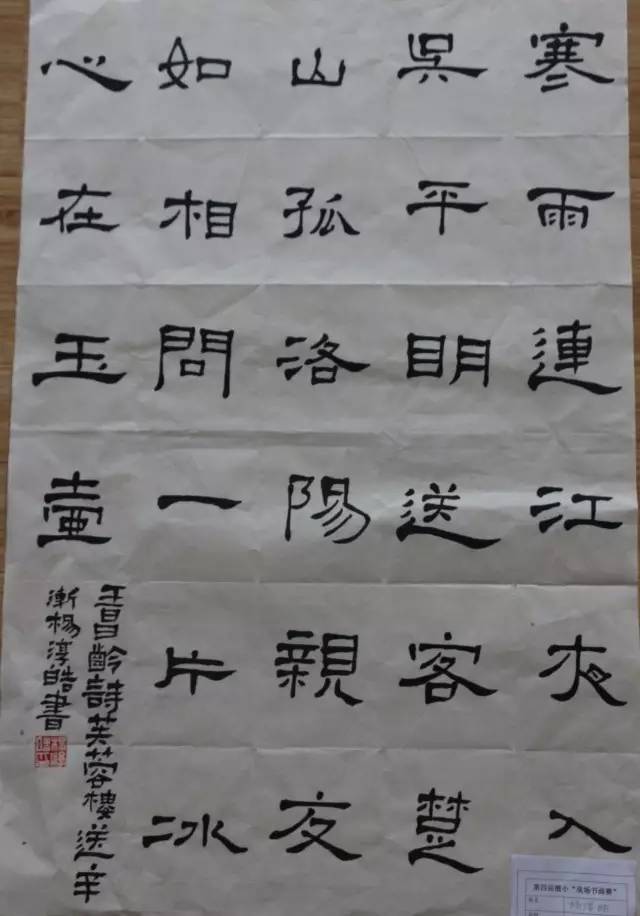 寒雨連江夜入
吳平明送客楚
山孤洛陽親友
如相問一片冰
心在玉壺
王昌齡詩芙蓉樓送辛
漸楊淳皓書
第四届小“现场书画赛”